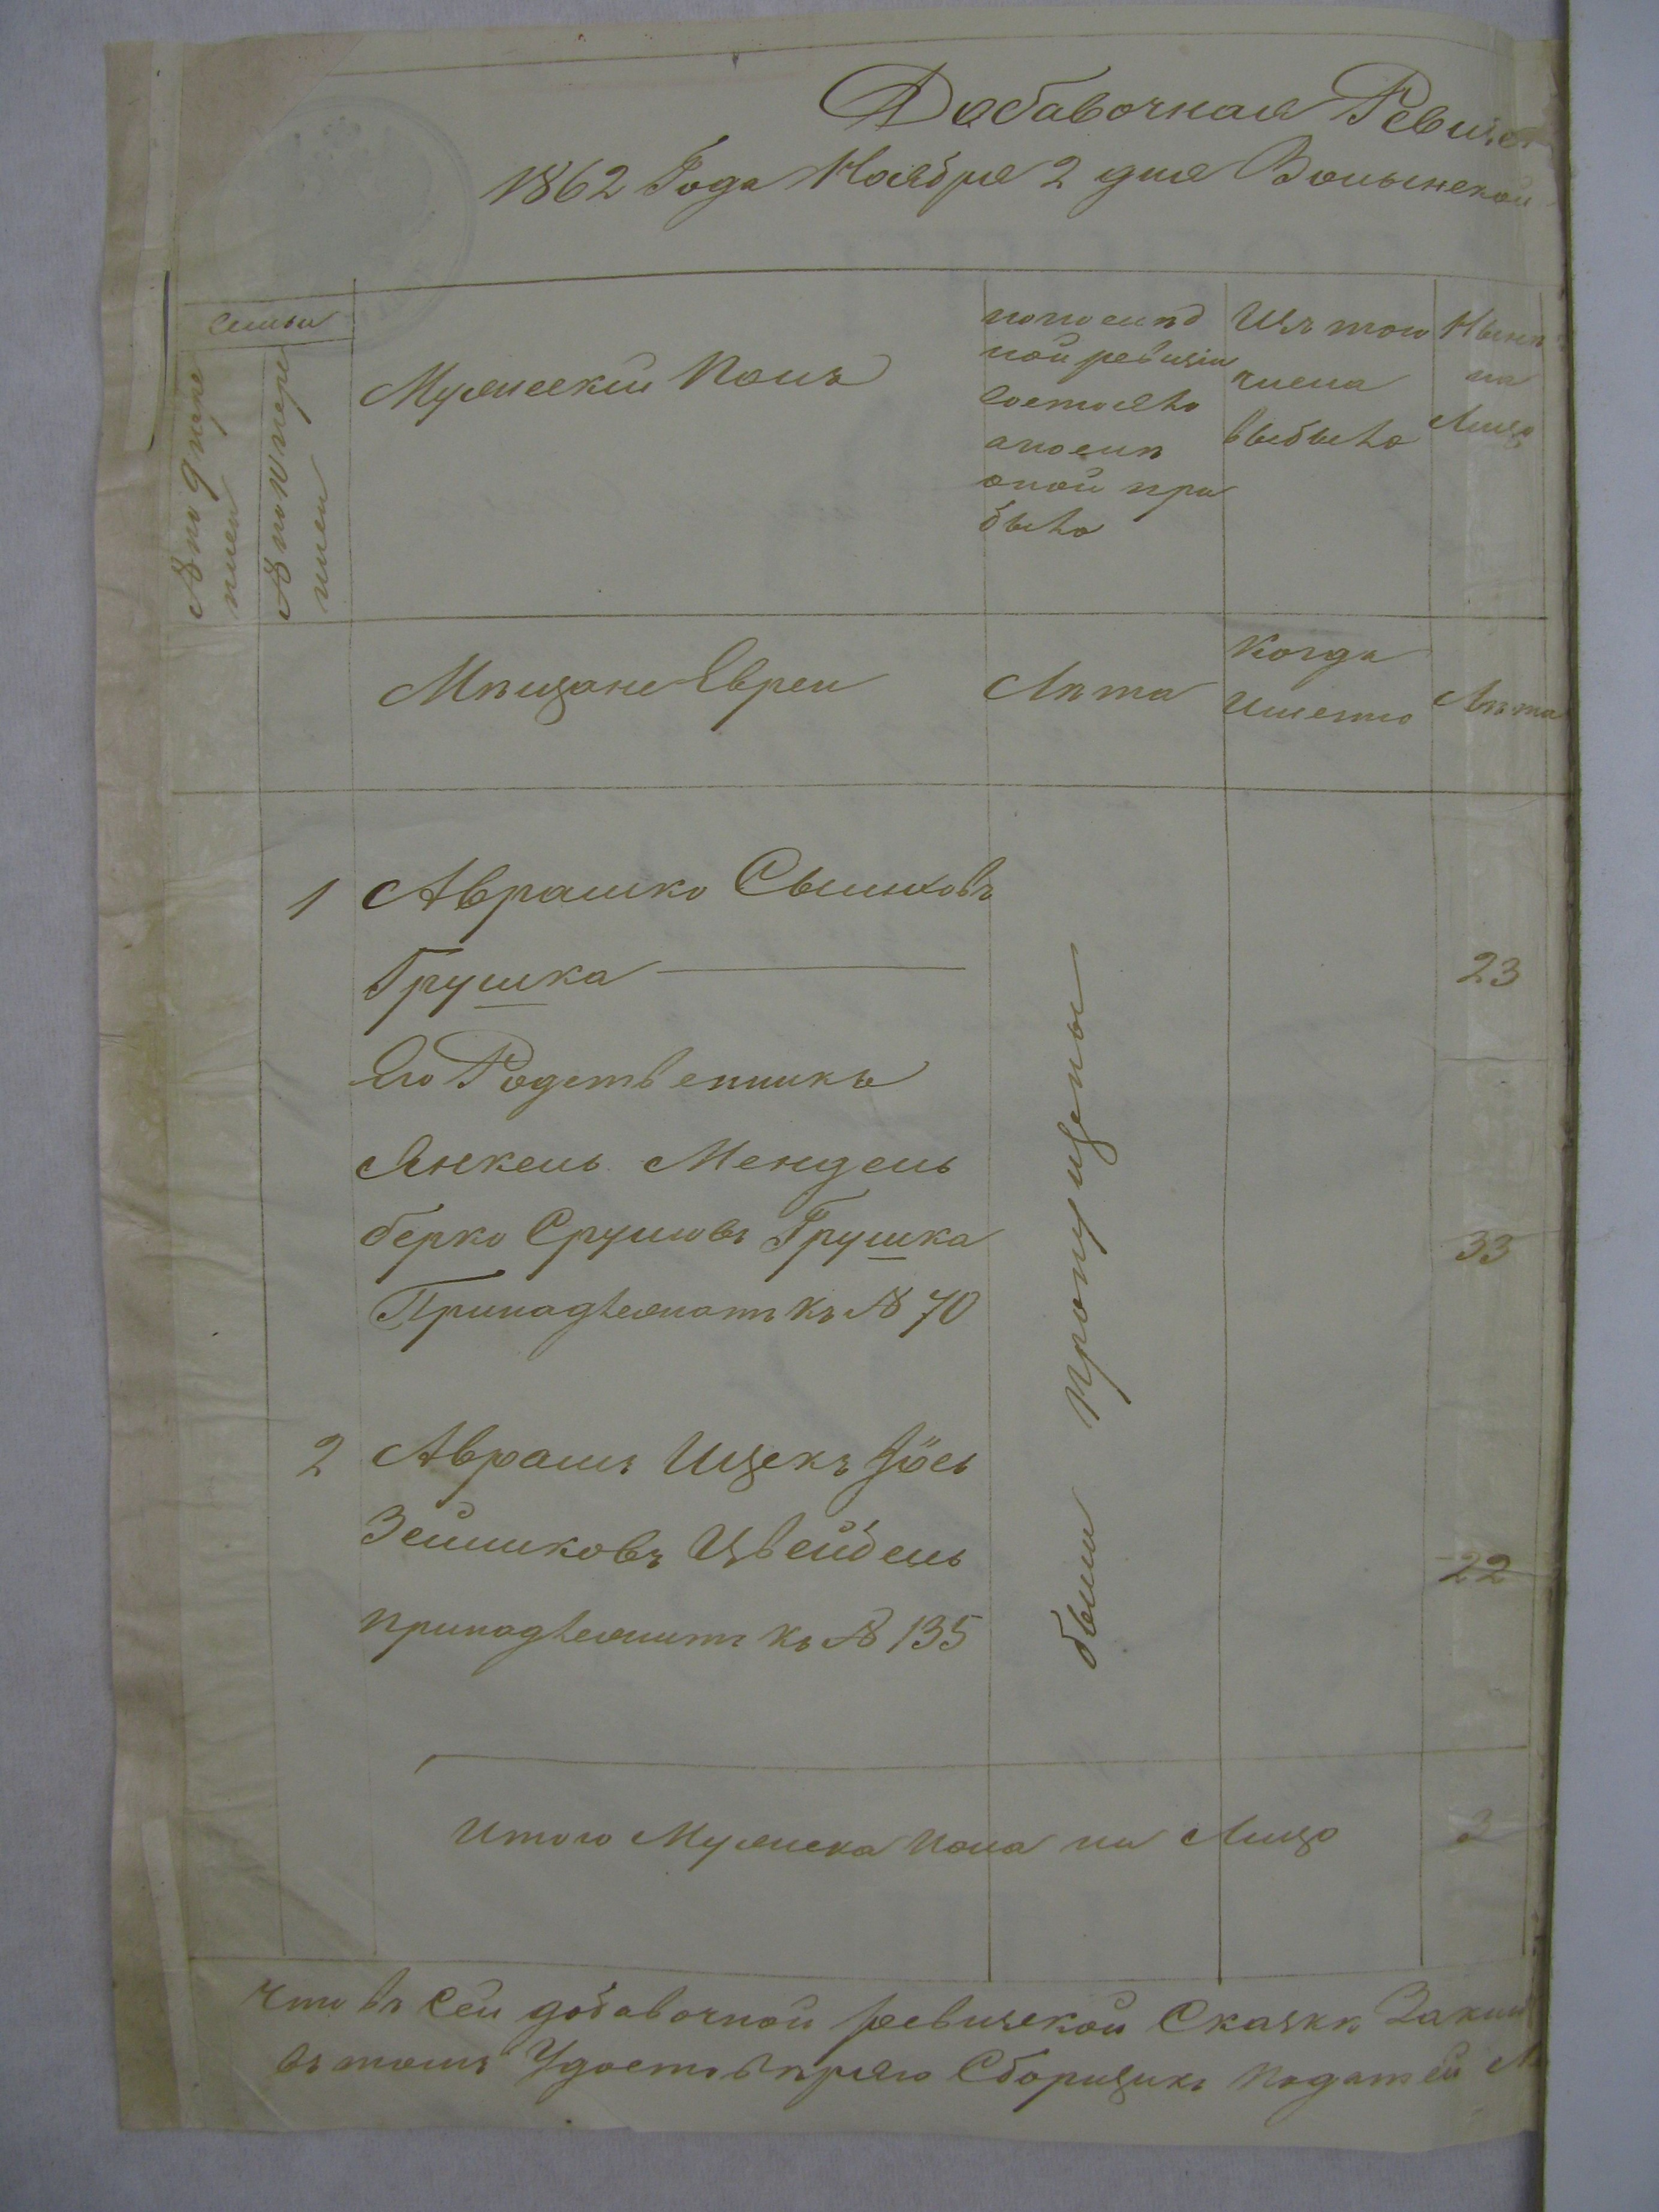 Добавочная Ревизс
1862 Года Ноября 2 дня Волынской
Семьи
№ по 9 пере
писи
№ по 10 пере
писи
Мужескій Полъ
по послѣд
ной ревизіи
состояло
а послѣ
оной при
было
Изъ того
числа
выбыло
Нынѣ
на
Лицо
Мѣщане Евреи
Лѣта
Когда
Именно
Лѣта
1 Аврашко Сымховъ
Грушка 23
Его Родственникъ
Янкель Мендель
берко Срулиовъ Грушка 33
Принадлежатъ къ № 70
2 Аврамъ Ицекъ Іось
Зейликовъ Цвейбель 22
принадлежитъ къ № 135
были пропущены
Итого Мужеска пола на Лицо 3
Что въ сей добавочной ревизской Сказкѣ
въ томъ Удостовѣряю Сборщикъ Податей